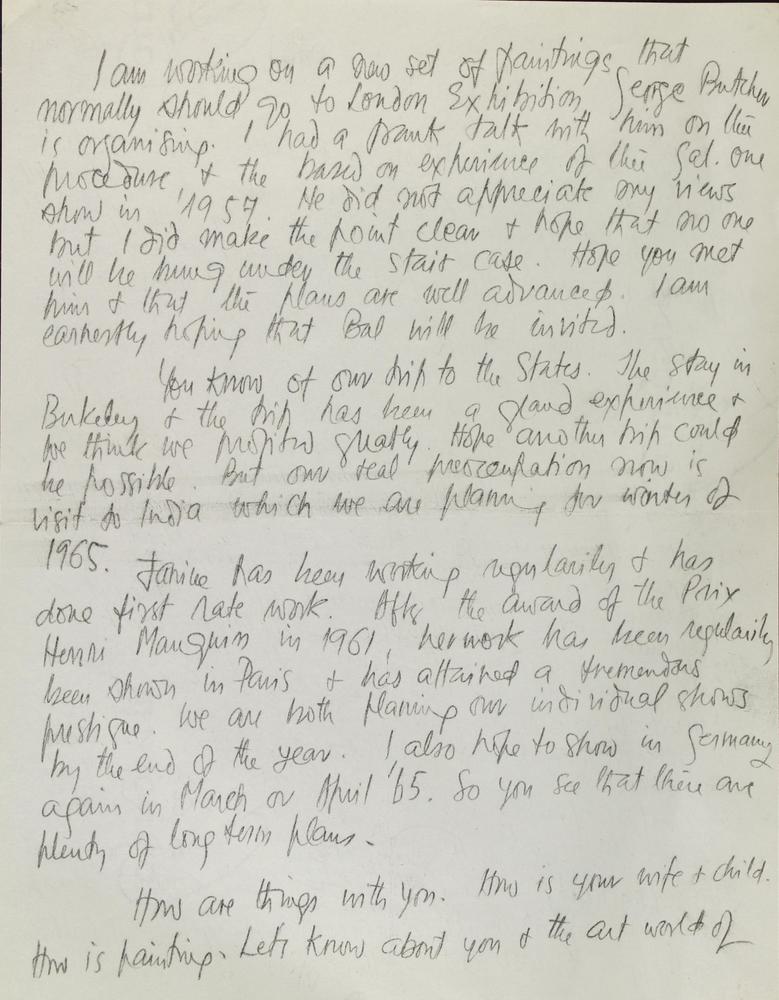 I am working on a new set of paintings that
normally should go to London Exhibition, George Butcher
is organising. I had a frank talk with him on the
procedure, & the based on experience of the Gal. one
show in '1957. He did not appreciate my views
but I did make the point clear & hope that no one
will be hung under the stair case. Hope you met
him & that the plans are well advanced. I am
earnestly hoping that Bal will be invited.
You know of our trip to the States. The stay in
Berkeley & the trip has been a grand experience &
we think we profited greatly. Hope another trip could
be possible. But our real preoccupation now is
visit to India which we are planning for winter of
1965. Janine has been working regularily & has
done first rate work. After the award of the Prix
Henri Manguin in 1961, her work has been regularily
been shown in Paris & has attained a tremendous
prestigue. We are both planning our individual shows
by the end of the year. I also hope to show in Germany
again in March or April '65. So you see that there are
plenty of long term plans.
How are things with you. How is your wife & child.
How is painting. Let's know about you & the art world of